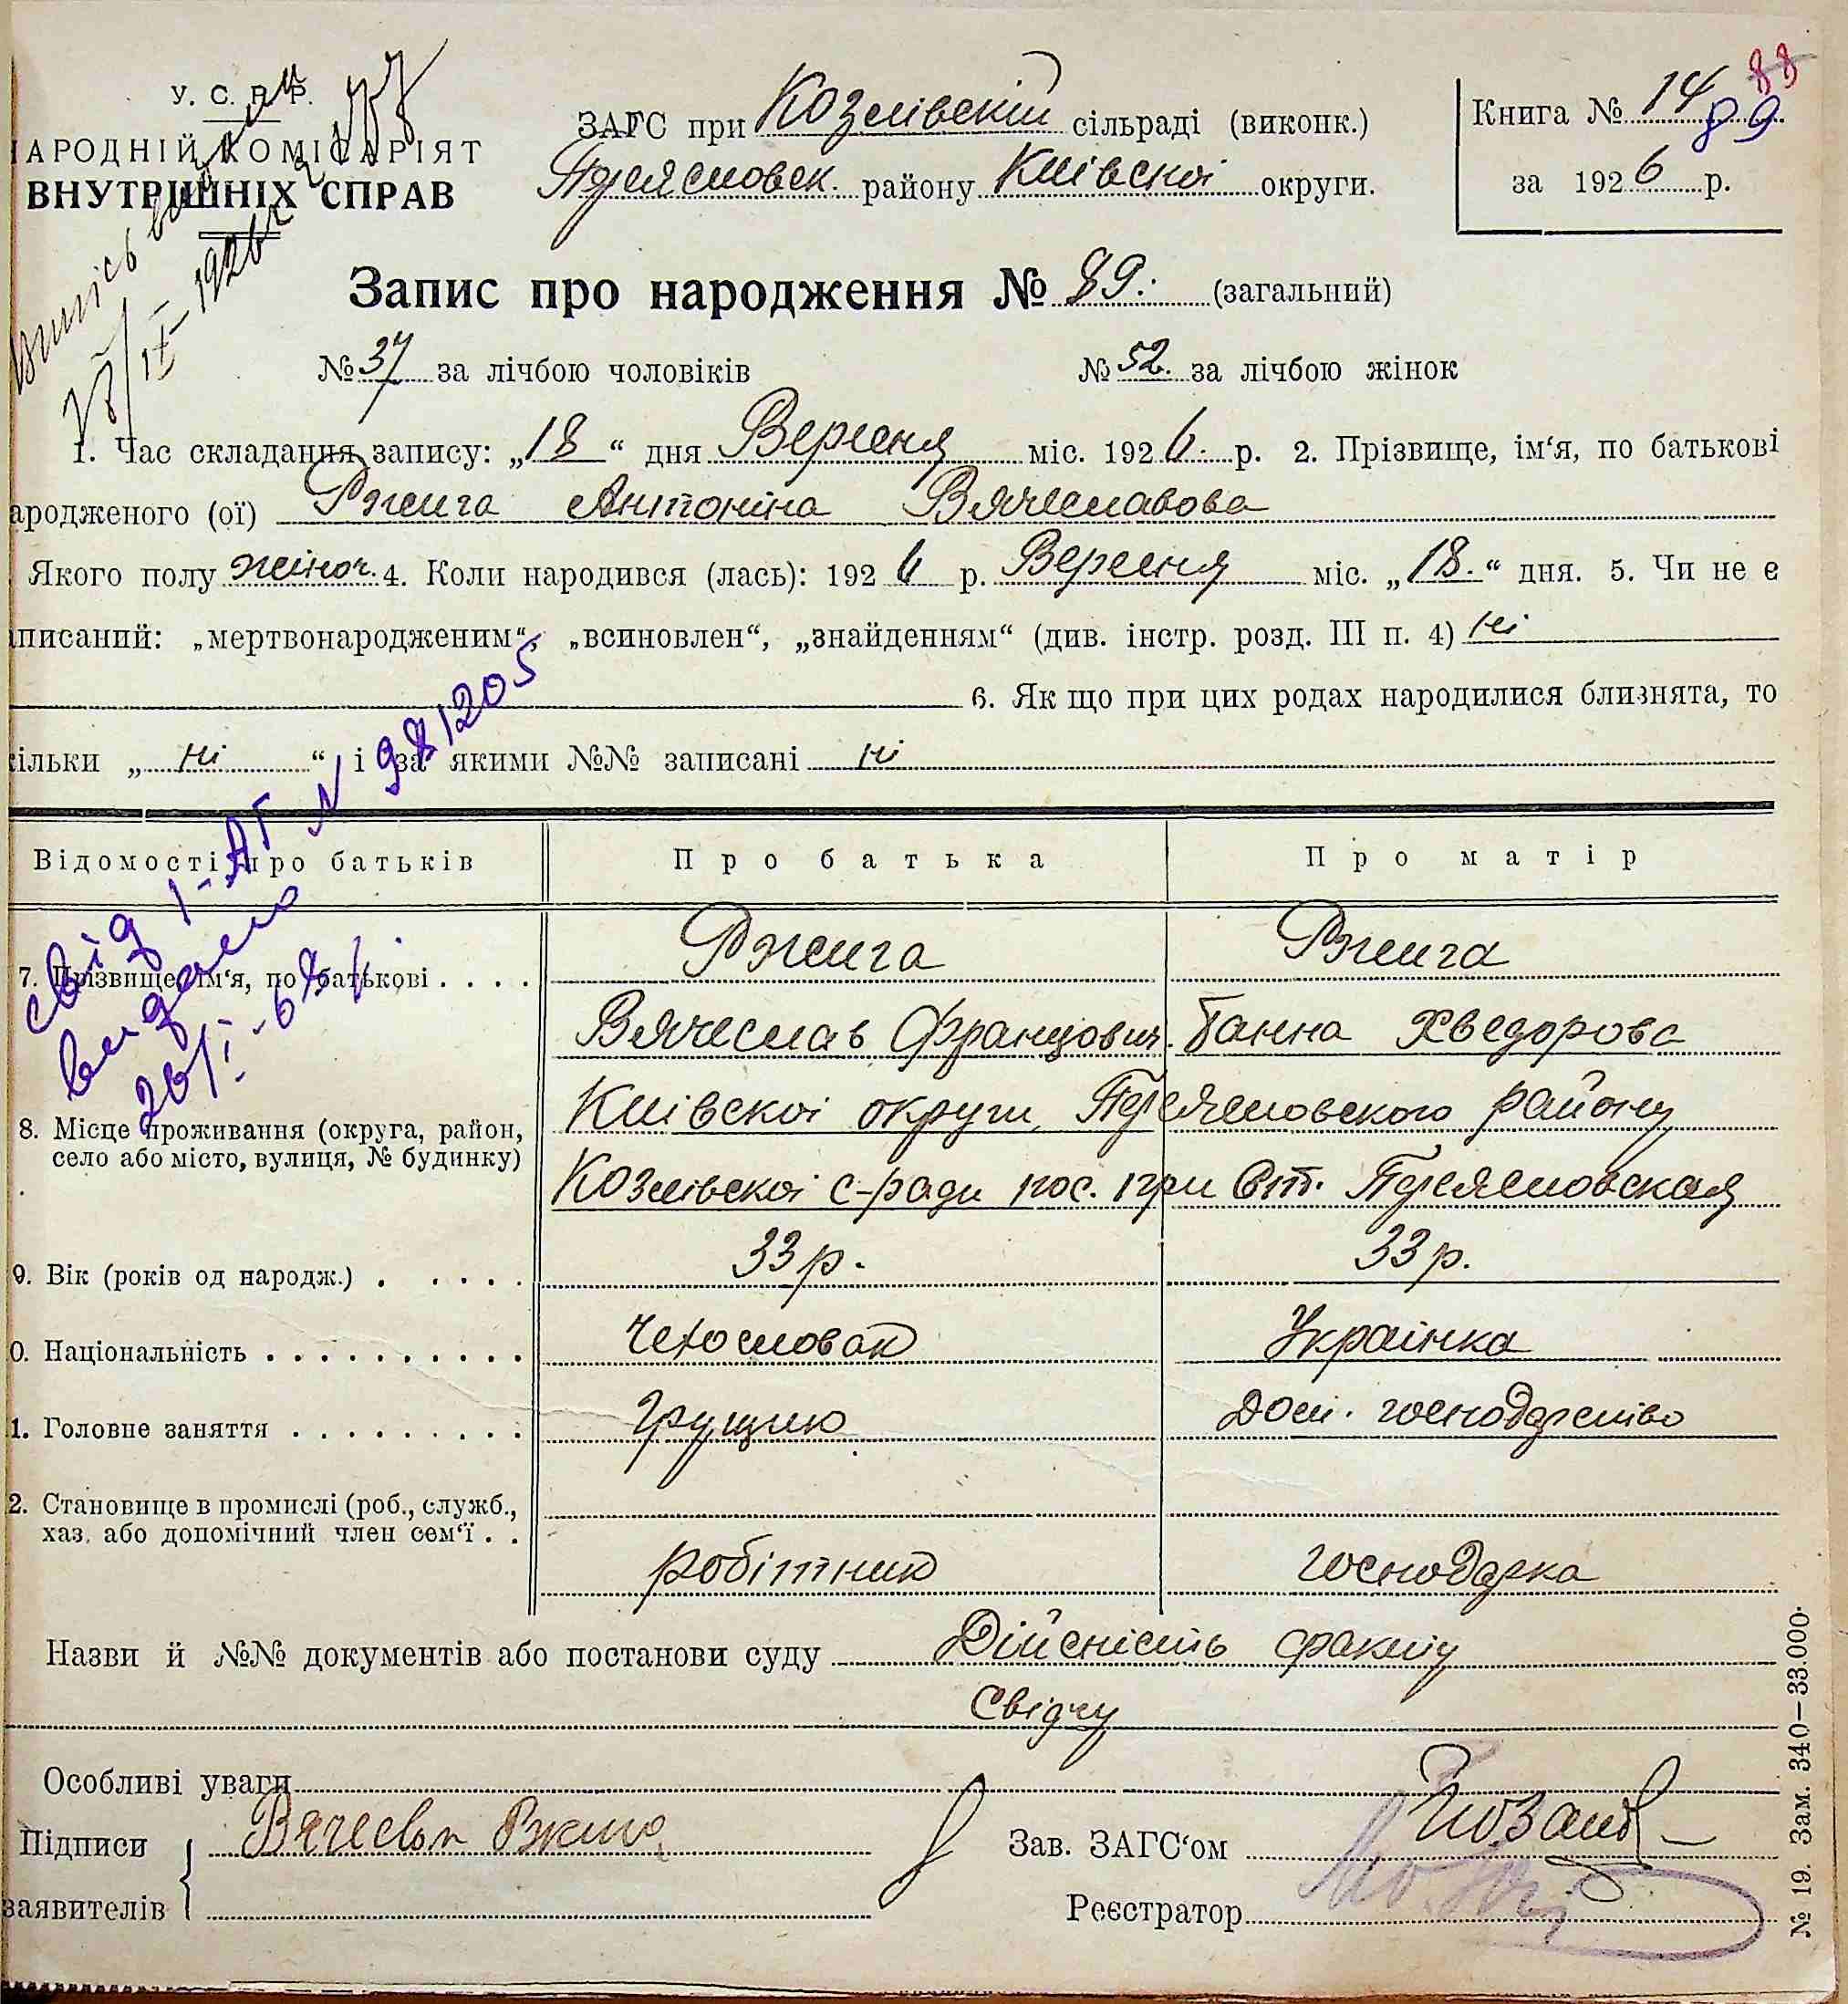 У. С. Р. Р.
АРОДНІЙ КОМІСАРІЯТ
ВНУТРІШНІХ СПРАВ
ЗАГС при Козлівскій сільраді (виконк.)
району Київскоі округи.
Книга № 14
88
89
за 1926 р.
Випісь видана
18/IX-1926 р.
Запис про народження № 89. (загальний)
№ 37 за лічбою чоловіків
№ 52. за лічбою жінок
1. Час складання запису: „18“ дня Вересня міс. 1926. р. 2. Прізвище, ім‘я, по батькові
ародженого (ої) Ржига Антоніна Вячеславова
Якого полу жіноч. 4. Коли народився (лась): 1926 р. Вересня міс. „18.“ дня. 5. Чи не є
писаний: „мертвонародженим“, „всиновлен“, „знайденням“ (див. інстр. розд. III п. 4) ні
6. Як що при цих родах народилися близнята, то
ільки „ ні “ і за якими №№ записані ні
Відомості про батьків
Про батька
Про матір
свід I-АГ № 981205
видано
20/I-68 р.
7. Прізвище, ім‘я, по батькові . . . .
Ржига
Ржига
Вячеслав Францович.
Ганна Хведорова
8. Місце проживання (округа, район,
село або місто, вулиця, № будинку)
Київскоі округи, Переясловского району
Козлівскоі с-ради пос. при Ст. Переясловская
9. Вік (років од народж.) . . . . . .
33 р.
33 р.
0. Національність . . . . . . . . . .
Чехословак
Украінка
1. Головне заняття . . . . . . . . .
грущик
Дом. господарство
2. Становище в промислі (роб., служб.,
хаз. або допомічний член сем‘ї . .
робітник
господарка
Назви й №№ документів або постанови суду Дійсність факту
Свідчу
Особливі уваги
Підписи
заявителів
Вячеслав Ржига
Зав. ЗАГС‘ом
Реєстратор
№ 19. Зам. 340—33.000.